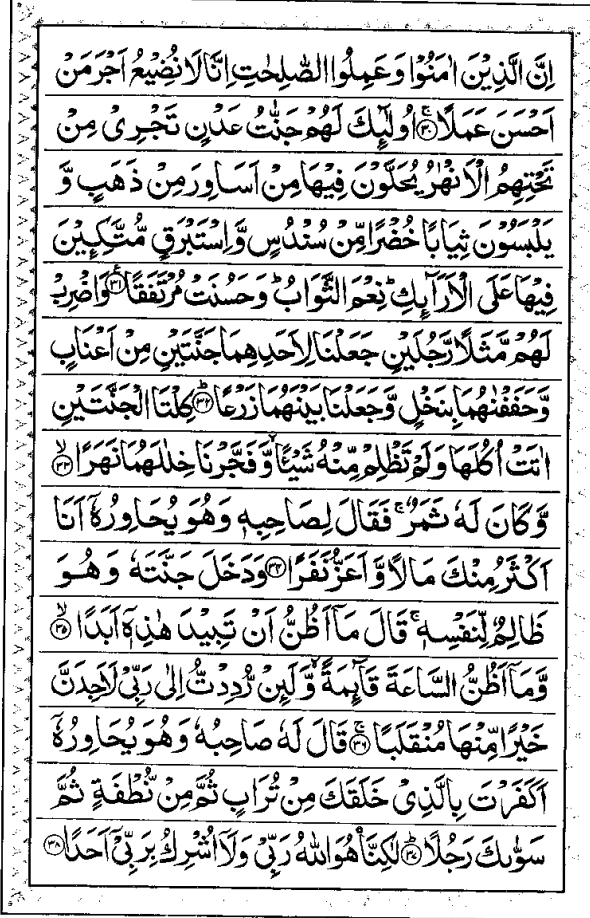 اِنَّ الَّذِیْنَ اٰمَنُوْا وَعَمِلُوا الصّٰلِحٰتِ اِنَّا لَا نُضِیْعُ اَجْرَ مَنْ
اَحْسَنَ عَمَلًا ۚ﴿۳۰﴾ اُولٰٓئِكَ لَهُمْ جَنّٰتُ عَدْنٍ تَجْرِیْ مِنْ
تَحْتِهِمُ الْاَنْهٰرُ یُحَلَّوْنَ فِیْهَا مِنْ اَسَاوِرَ مِنْ ذَهَبٍ وَّ
یَلْبَسُوْنَ ثِیَابًا خُضْرًا مِّنْ سُنْدُسٍ وَّاِسْتَبْرَقٍ مُّتَّكِـِٕیْنَ
فِیْهَا عَلَی الْاَرَآئِكِ ؕ نِعْمَ الثَّوَابُ ؕ وَحَسُنَتْ مُرْتَفَقًا ﴿۳۱﴾ وَاضْرِبْ
لَهُمْ مَّثَلًا رَّجُلَیْنِ جَعَلْنَا لِاَحَدِهِمَا جَنَّتَیْنِ مِنْ اَعْنَابٍ
وَّحَفَفْنٰهُمَا بِنَخْلٍ وَّجَعَلْنَا بَیْنَهُمَا زَرْعًا ؕ﴿۳۲﴾ كِلْتَا الْجَنَّتَیْنِ
اٰتَتْ اُكُلَهَا وَلَمْ تَظْلِمْ مِّنْهُ شَیْـًٔا ۙ وَّفَجَّرْنَا خِلٰلَهُمَا نَهَرًا ۙ﴿۳۳﴾
وَّكَانَ لَهٗ ثَمَرٌ ۚ فَقَالَ لِصَاحِبِهٖ وَهُوَ یُحَاوِرُهٗۤ اَنَا
اَكْثَرُ مِنْكَ مَالًا وَّاَعَزُّ نَفَرًا ﴿۳۴﴾ وَدَخَلَ جَنَّتَهٗ وَهُوَ
ظَالِمٌ لِّنَفْسِهٖ ۚ قَالَ مَاۤ اَظُنُّ اَنْ تَبِیْدَ هٰذِهٖۤ اَبَدًا ۙ﴿۳۵﴾
وَّمَاۤ اَظُنُّ السَّاعَةَ قَآئِمَةً ۙ وَّلَىِٕنْ رُّدِدْتُّ اِلٰی رَبِّیْ لَاَجِدَنَّ
خَیْرًا مِّنْهَا مُنْقَلَبًا ۚ﴿۳۶﴾ قَالَ لَهٗ صَاحِبُهٗ وَهُوَ یُحَاوِرُهٗۤ
اَكَفَرْتَ بِالَّذِیْ خَلَقَكَ مِنْ تُرَابٍ ثُمَّ مِنْ نُّطْفَةٍ ثُمَّ
سَوّٰىكَ رَجُلًا ؕ﴿۳۷﴾ لٰكِنَّاۡ هُوَ اللّٰهُ رَبِّیْ وَلَاۤ اُشْرِكُ بِرَبِّیْۤ اَحَدًا ﴿۳۸﴾